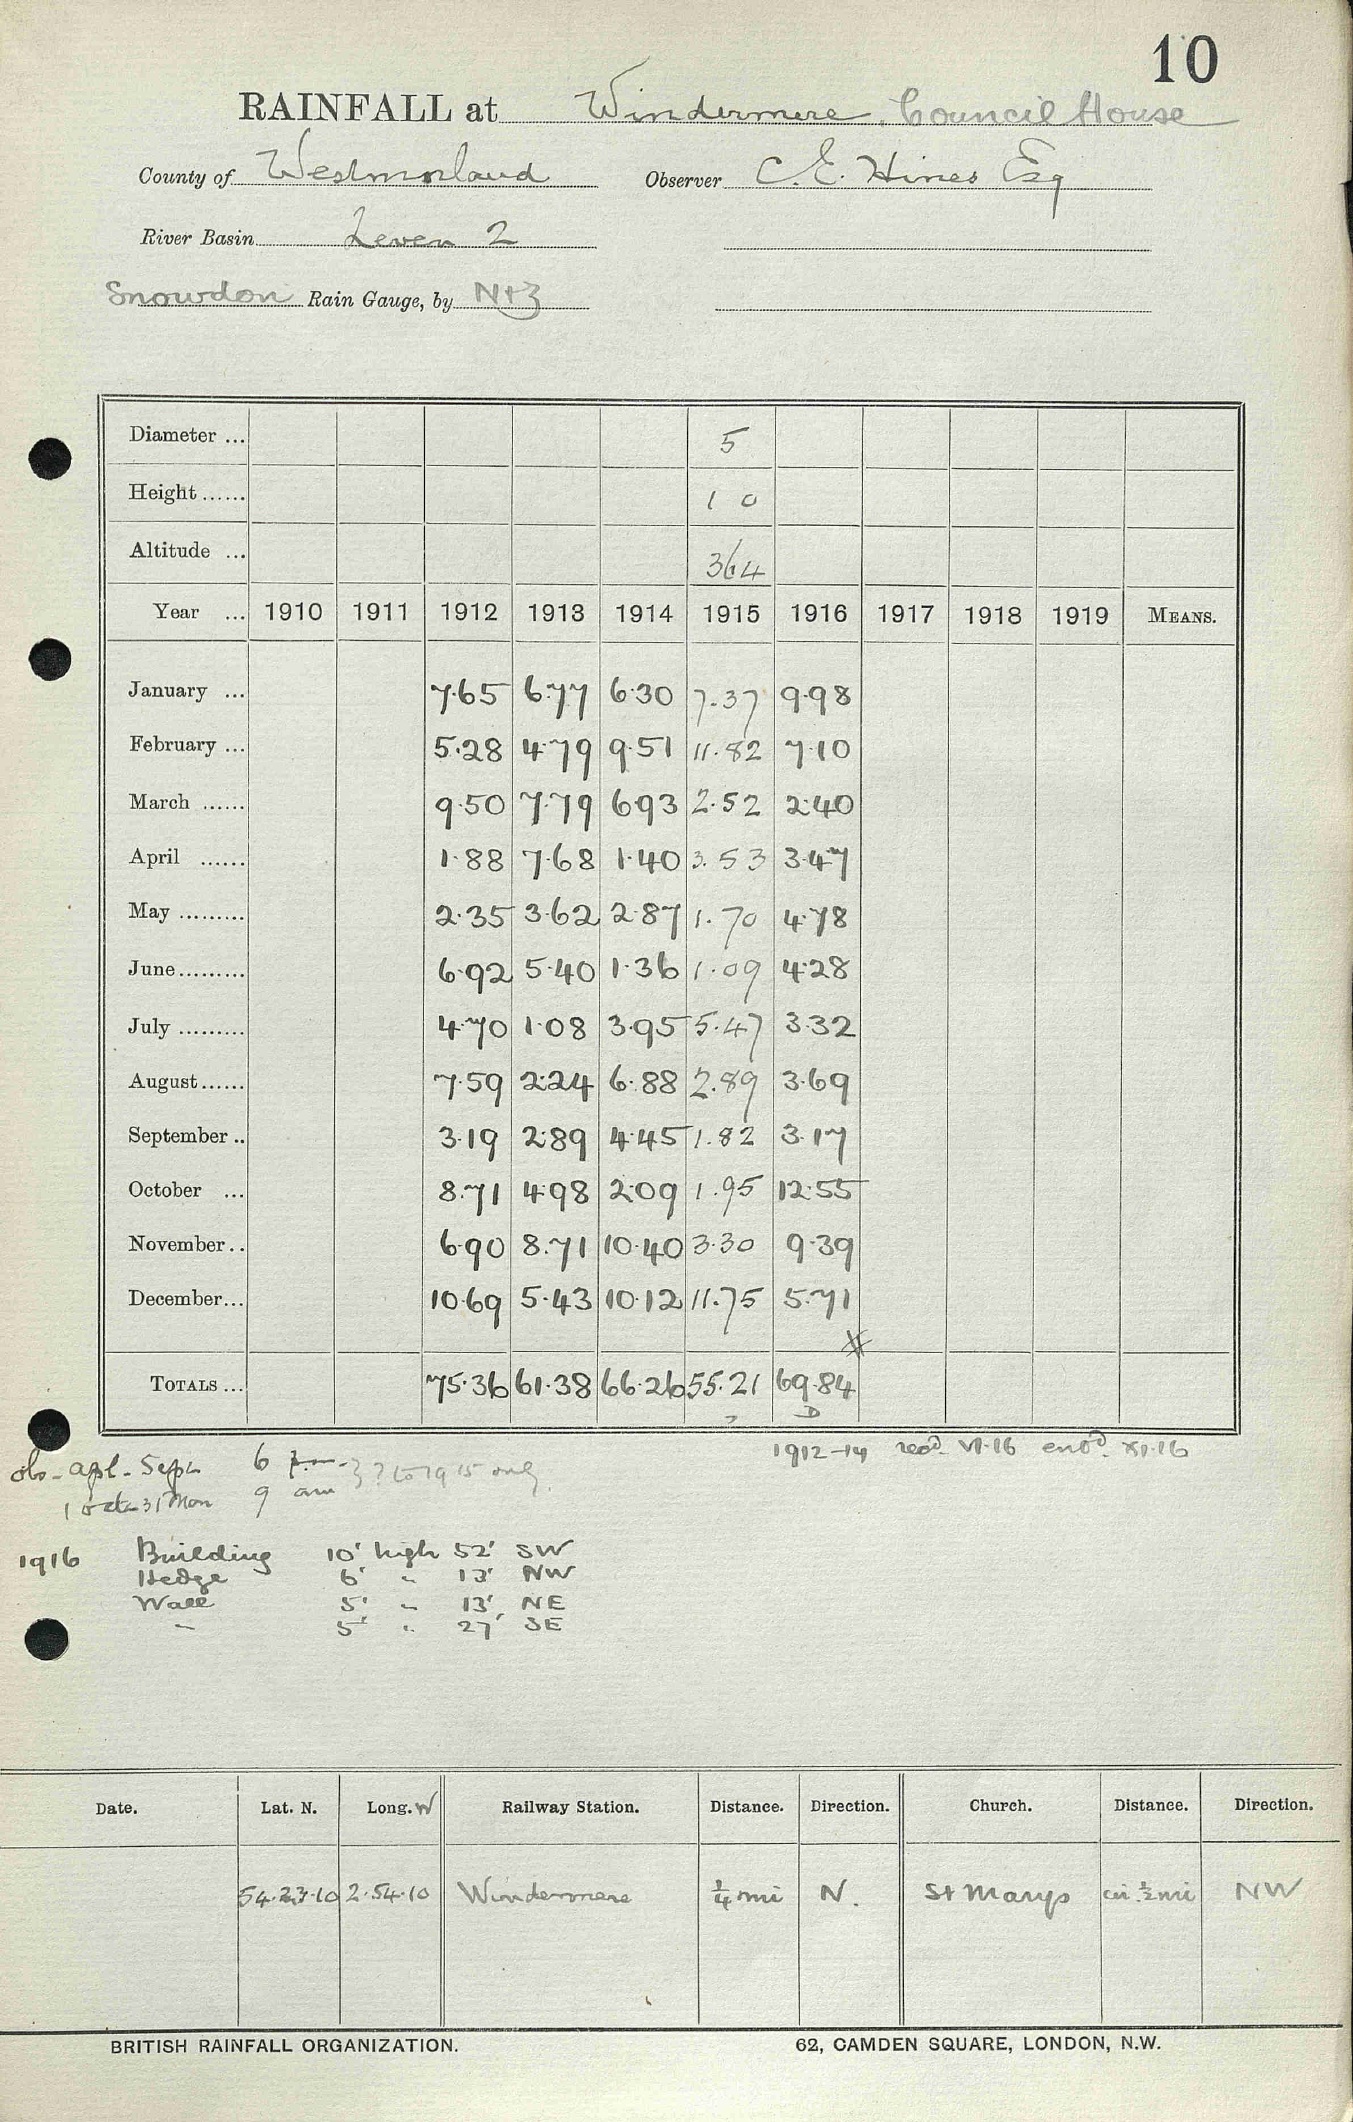 10
RAINFALL at Windermere, Council House
County of Westmorland Observer C. E. Hines Esq
River Basin Leven 2
Snowdon Rain Gauge, by N+Z
Diameter ... 5
Height ...... 1 0
Altitude ... 364
Year ... 1910 1911 1912 1913 1914 1915 1916 1917 1918 1919 MEANS.
January ... 7.65 6.77 6.30 7.37 9.98
February ... 5.28 4.79 9.51 11.82 7.10
March ...... 9.50 7.79 6.93 2.52 2.40
April ...... 1.88 7.68 1.40 3.53 3.47
May ......... 2.35 3.62 2.87 1.70 4.78
June ......... 6.92 5.40 1.36 1.09 4.28
July ......... 4.70 1.08 3.95 5.47 3.32
August ...... 7.59 2.24 6.88 2.89 3.69
September .. 3.19 2.89 4.45 1.82 3.17
October ... 8.71 4.98 2.09 1.95 12.55
November .. 6.90 8.71 10.40 3.30 9.39
December ... 10.69 5.43 10.12 11.75 5.71
TOTALS ... 75.36 61.38 66.26 55.21 69.84
D
1912-14 recd. VI.16 entd. XI.16
obs - apl - Sept 6 pm } ? to 1915 only.
1 Oct - 31 Mar 9 am
1916 Building 10' high 52' SW
Hedge 6' " 13' NW
Wall 5' " 13' NE
" 5' " 27' SE
Date. Lat. N. Long. W Railway Station. Distance. Direction. Church. Distance. Direction.
54.23.10 2.54.10 Windermere ¼ mi N. St Marys ½ mi NW
BRITISH RAINFALL ORGANIZATION. 62, CAMDEN SQUARE, LONDON, N.W.